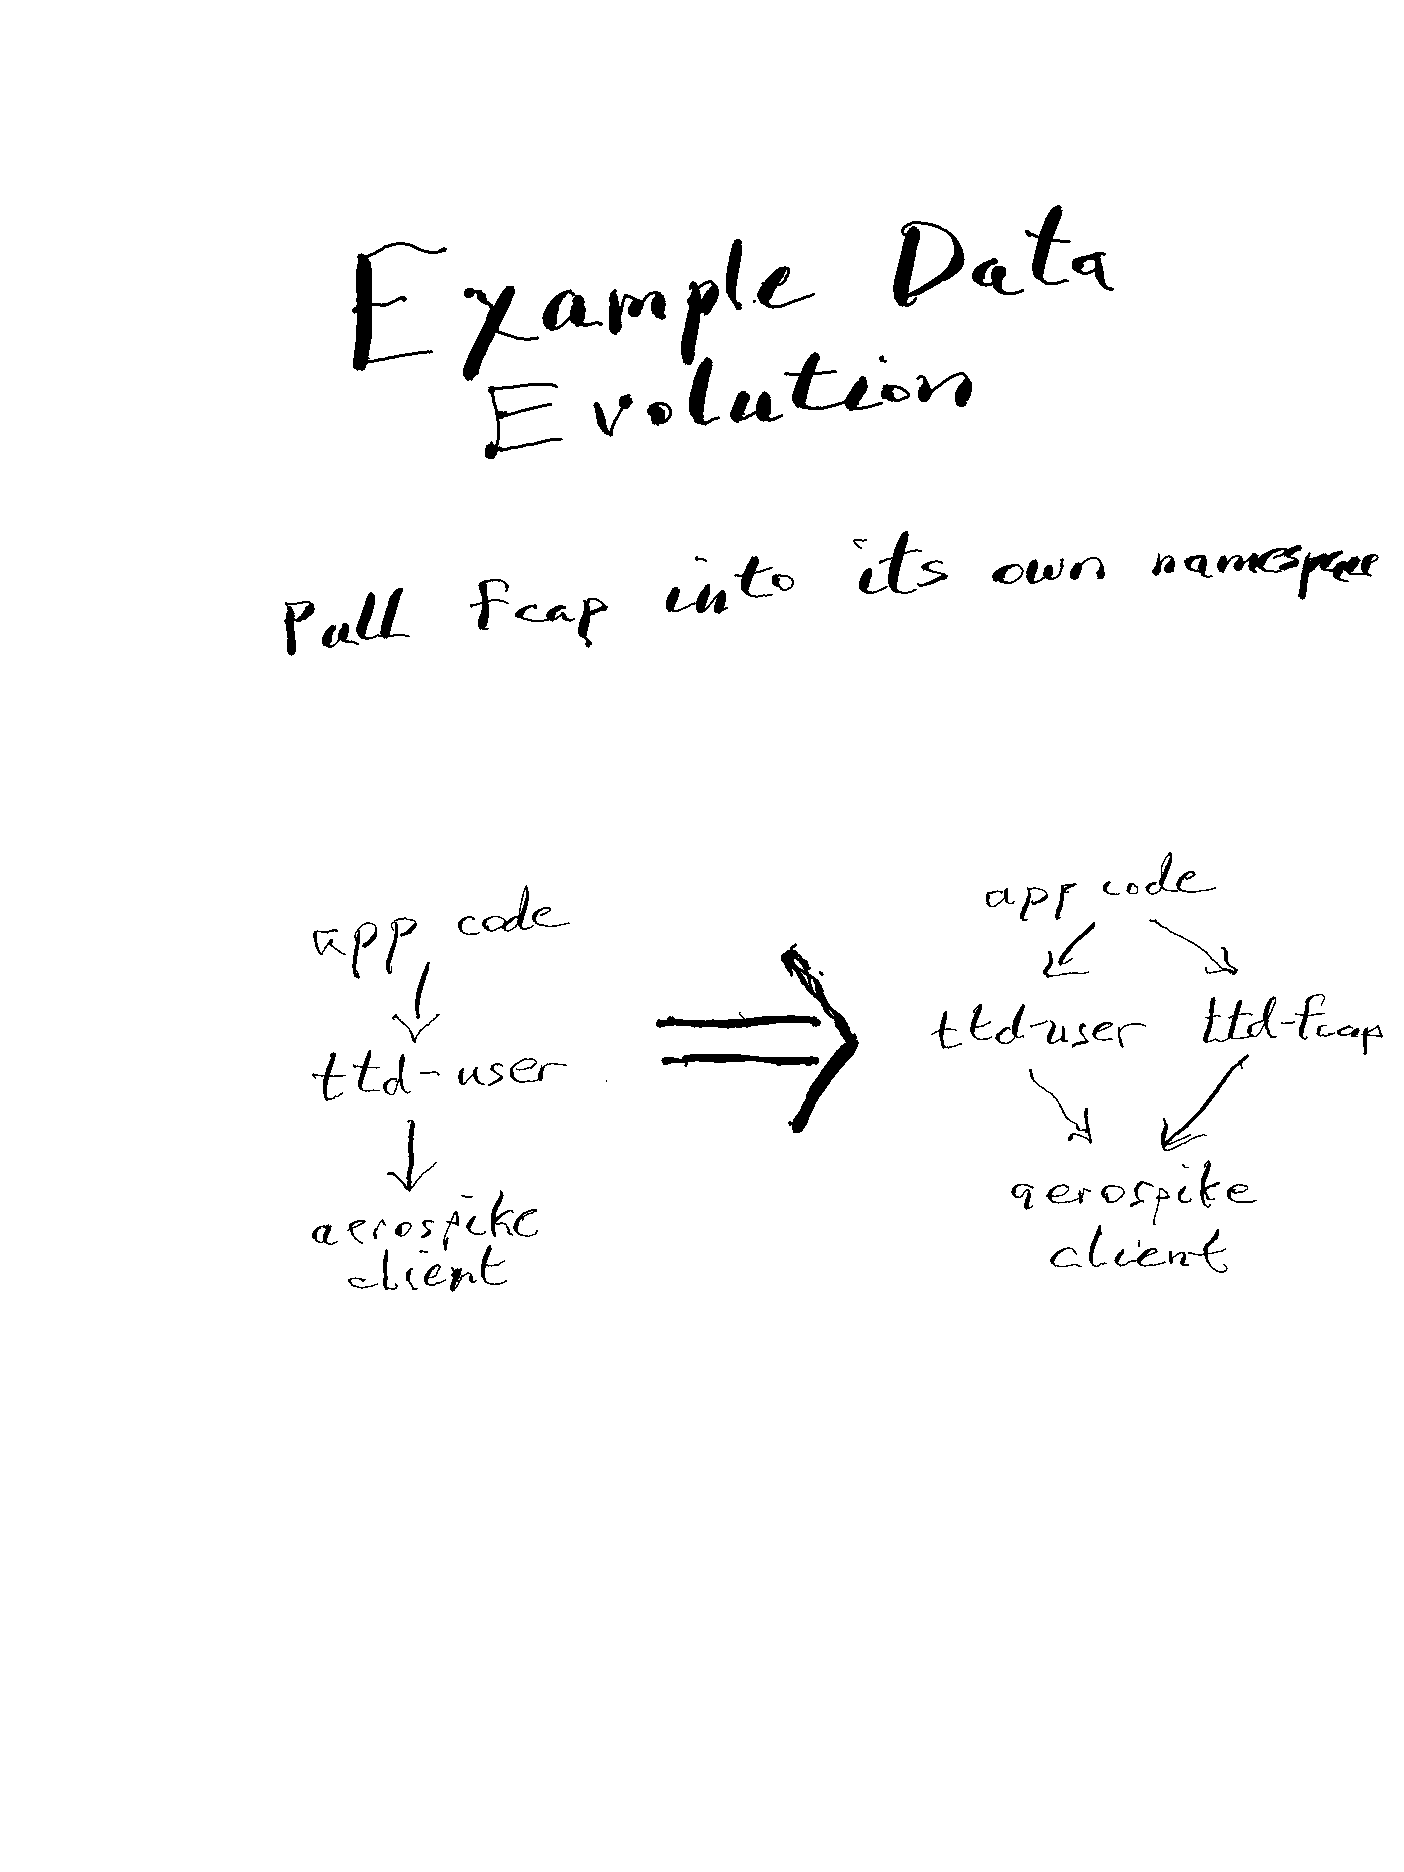 Example Data
Evolution
Pull fcap into its own namespace
app code
ttd-user
aerospike
client
app code
ttd-user ttd-fcap
aerospike
client